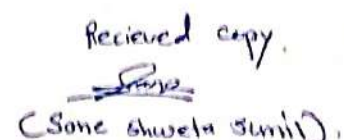 Recieved copy.
(Sone Shweta Sumit).